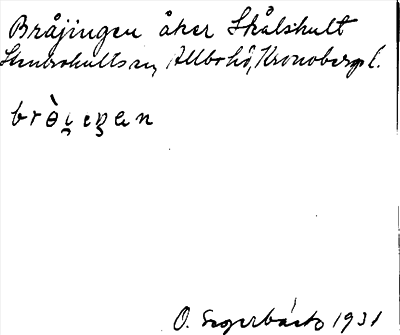 Bråjingen åker Skålshult
Stenbrohults sn, Allbo hd, Kronobergs l.
brə̀i̯eŋen
O. Segerbäck 1931